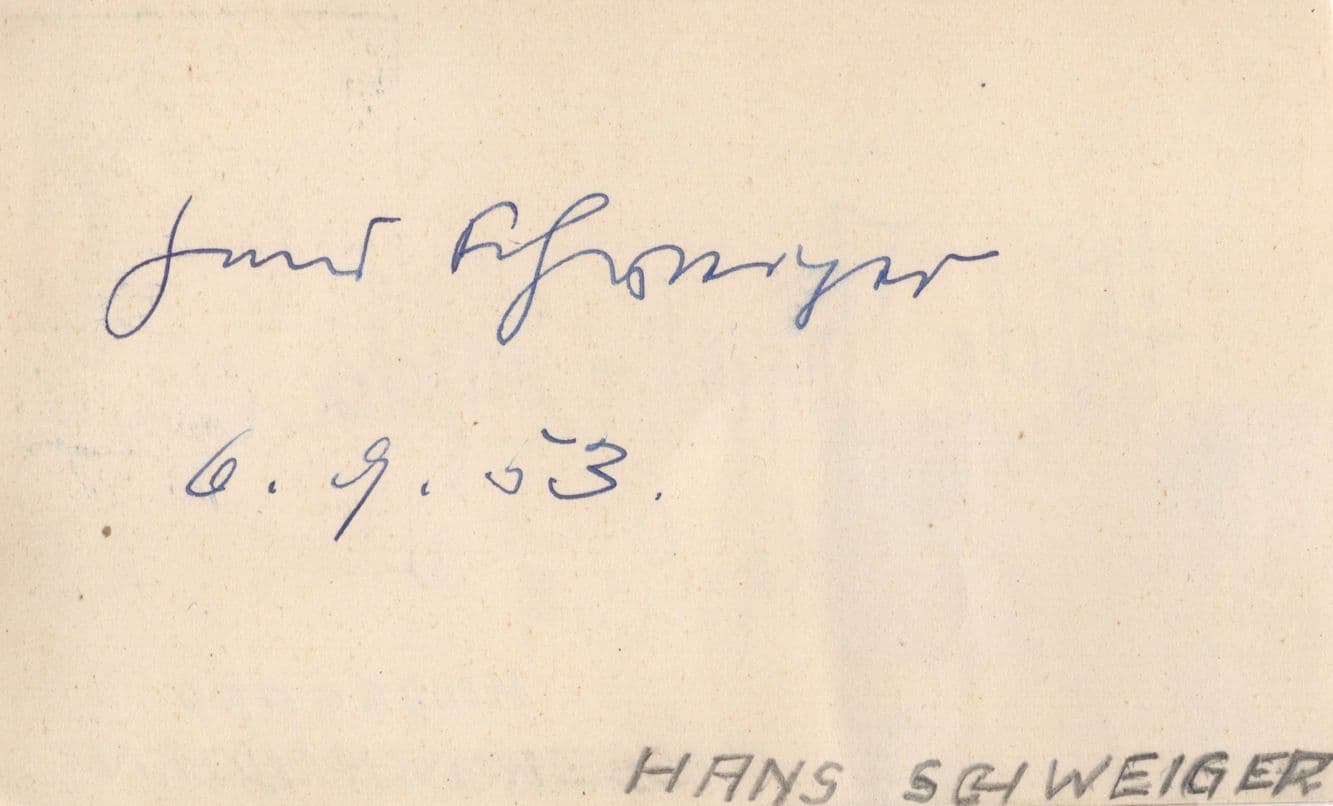 Hans Schweiger
6. 9. 53.
HANS SCHWEIGER